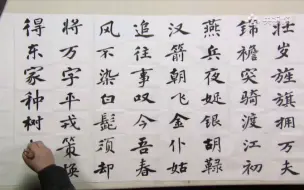 壮岁旌旗拥万夫
锦襜突骑渡江初
燕兵夜娖银胡䩮
汉箭朝飞金仆姑
追往事叹今吾春
风不染白髭须却
将万字平戎策换
得东家种树